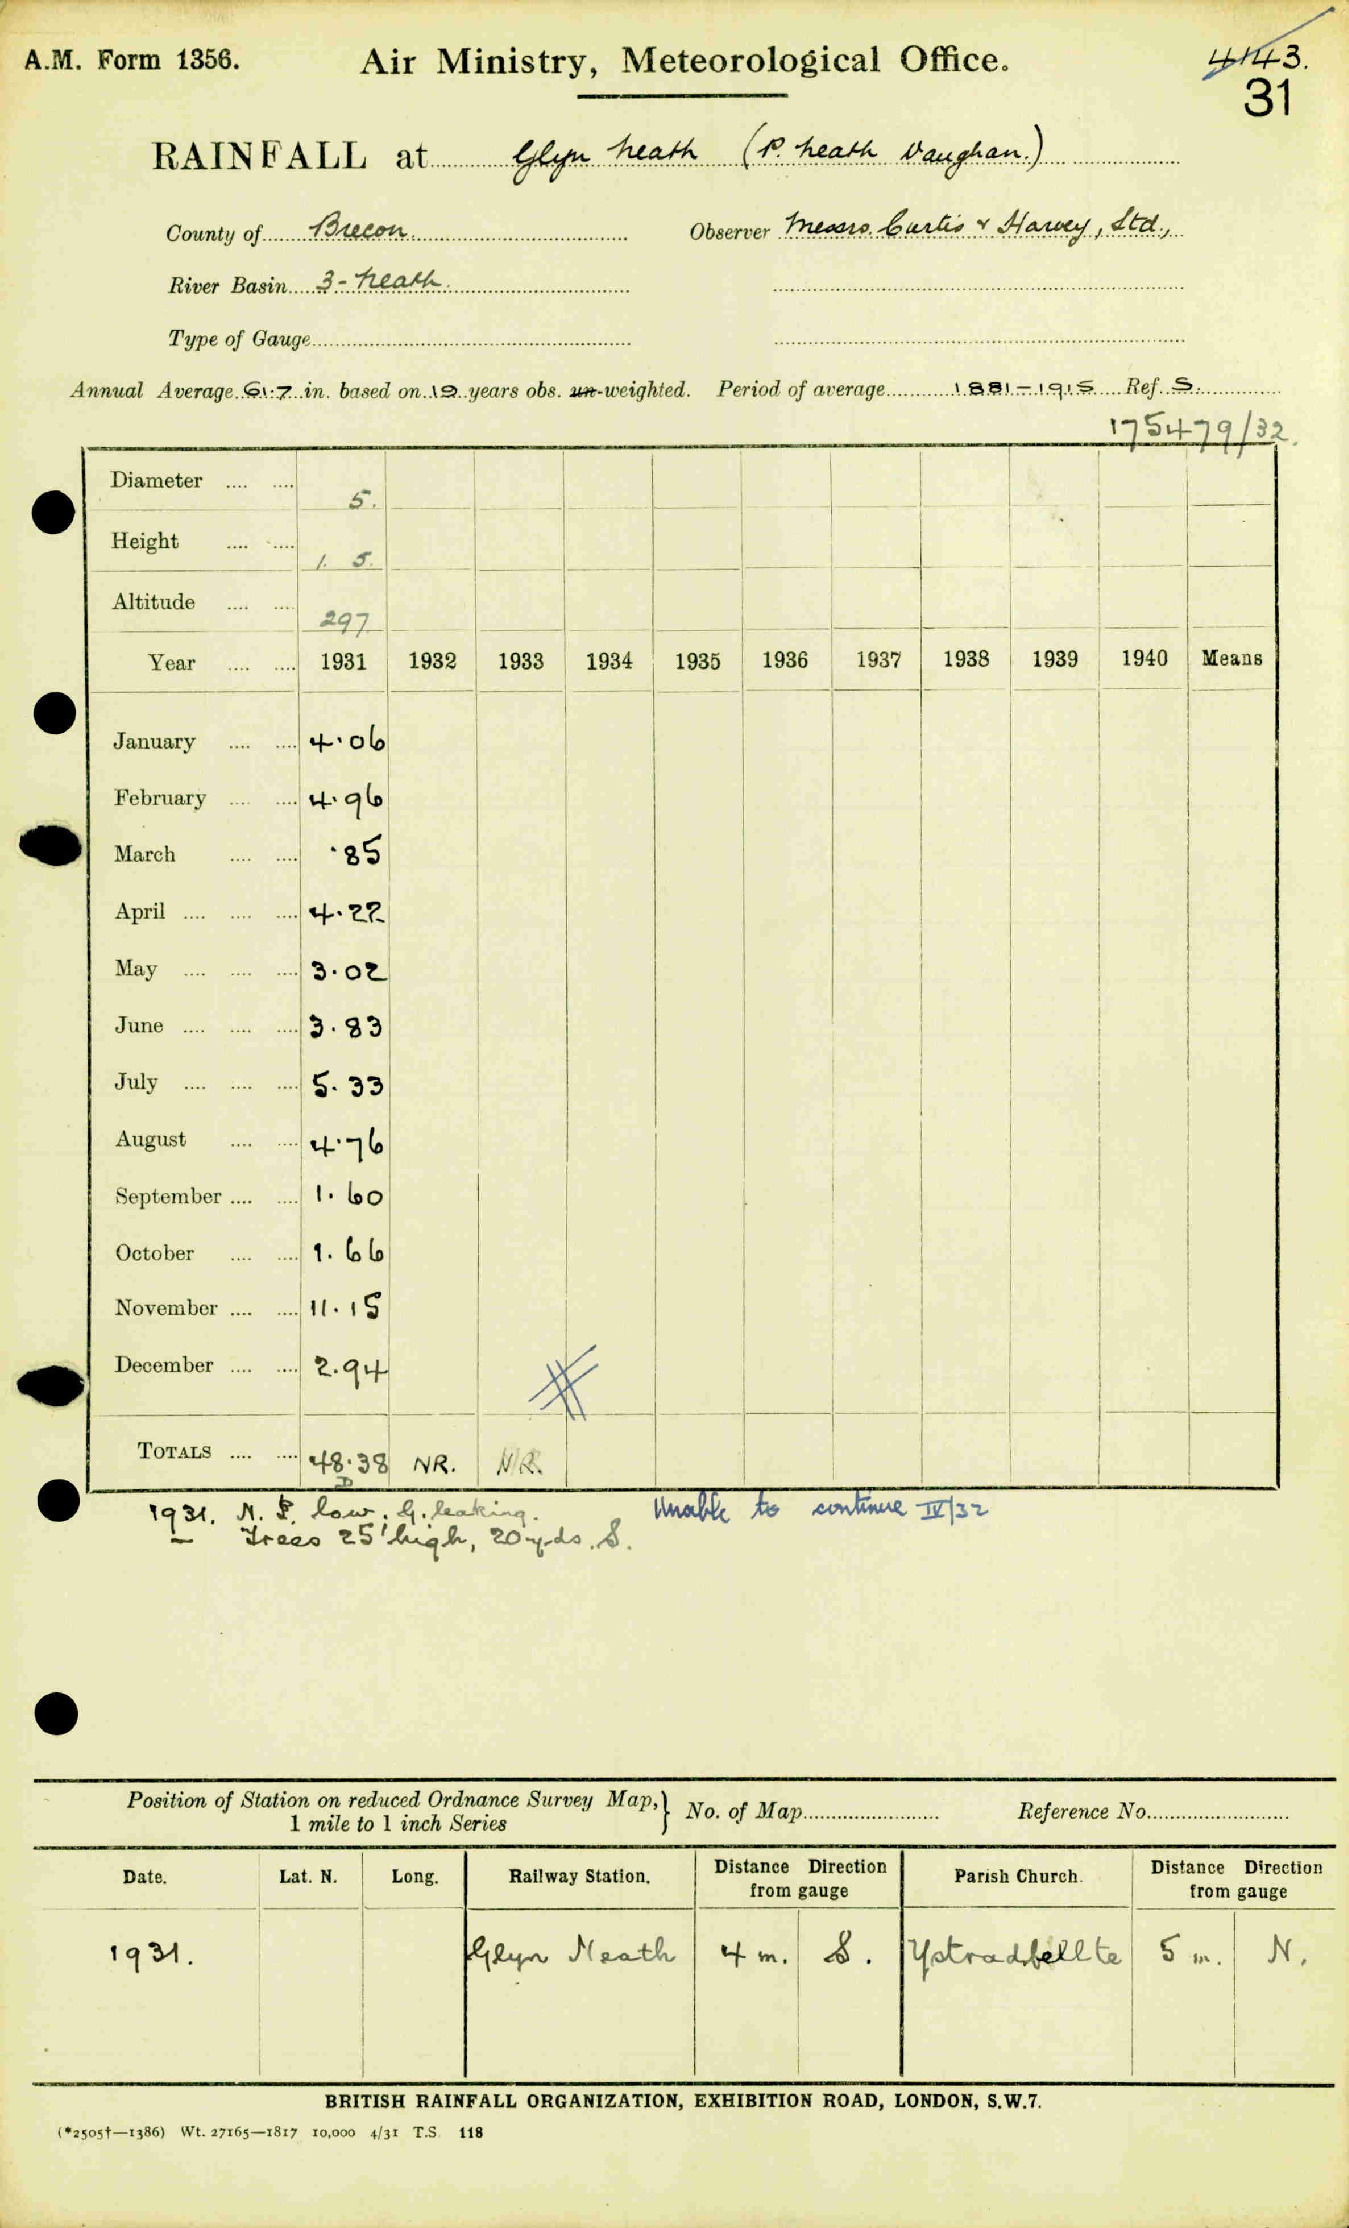 A.M. Form 1356.
Air Ministry, Meteorological Office.
4143.
31
RAINFALL at Glyn Neath (P. Neath Vaughan.)
County of Brecon. Observer Messrs. Curtis & Harvey, Ltd.,
River Basin 3 - Neath.
Type of Gauge
Annual Average 61·7 in. based on 19 years obs. un-weighted. Period of average 1881-1915 Ref. S.
175479/32.
Diameter 5.
Height 1. 5.
Altitude 297
Year 1931 1932 1933 1934 1935 1936 1937 1938 1939 1940 Means
January 4·06
February 4·96
March ·85
April 4·22
May 3·02
June 3·83
July 5·33
August 4·76
September 1·60
October 1·66
November 11·15
December 2·94
TOTALS 48·38 NR. NR.
D
1931. N. P. low. G. leaking. Unable to continue IV/32
Trees 25' high, 20 yds. S.
Position of Station on reduced Ordnance Survey Map,} No. of Map Reference No.
1 mile to 1 inch Series
Date. Lat. N. Long. Railway Station. Distance Direction from gauge Parish Church. Distance Direction from gauge
1931. Glyn Neath 4 m. S. Ystradfellte 5 m. N.
BRITISH RAINFALL ORGANIZATION, EXHIBITION ROAD, LONDON, S.W.7.
(*2505†—1386) Wt. 27165—1817 10,000 4/31 T.S. 118